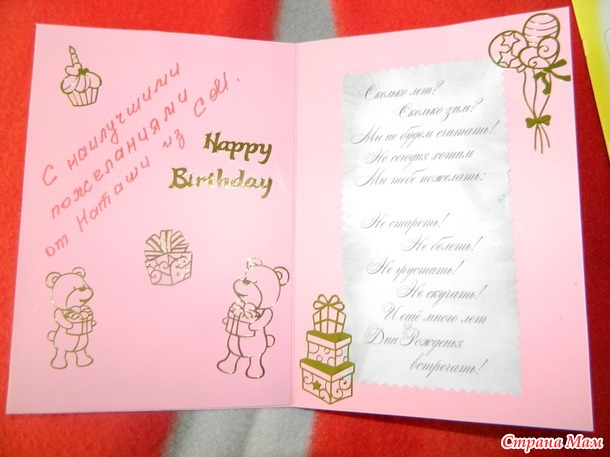 С наилучшими
пожеланиями
от Наташи из СМ.
Happy
Birthday
Сколько лет?
Сколько зим?
Мы не будем считать!
Но сегодня хотим
Мы тебе пожелать:
Не стареть!
Не болеть!
Не грустить!
Не скучать!
И ещё много лет
Дни Рожденья
встречать!
Страна Мам